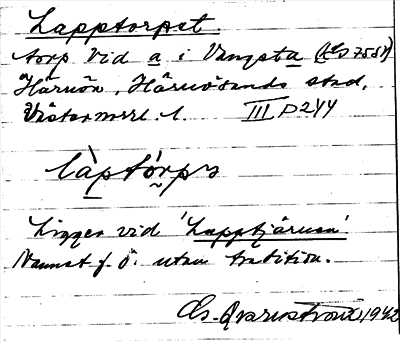 Lapptorpet.
torp vid a i Vängsta (
Härnön, Härnösands stad,
Västernorrl. l. III D 244
làptórps
Ligger vid 'Lapptjärnen'
Namnet f. ö. utan tradition.
Gs. Qvarnström 1942